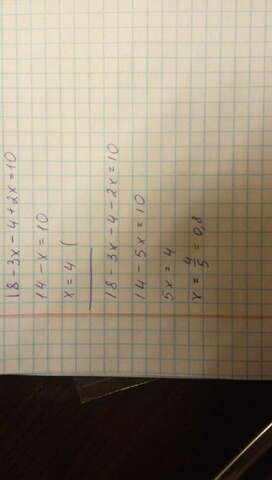 18 - 3x - 4 + 2x = 10
14 - x = 10
x = 4 (
18 - 3x - 4 - 2x = 10
14 - 5x = 10
5x = 4
x = 4/5 = 0,8